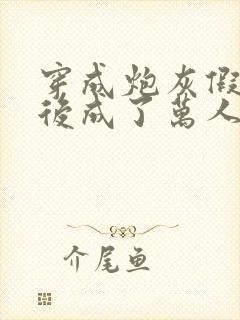 穿成炮灰假
後成了萬人
介尾鱼